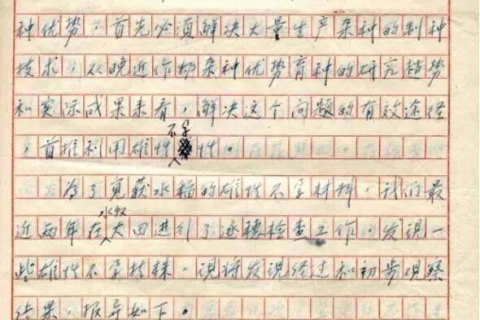 种优势，首先必须解决大量生产杂种的制种
技术，从晚近作物杂种优势育种的研究趋势
和实际成果来看，解决这个问题的有效途径
，首推利用雄性不孕性。
为了获水稻的雄性不孕材料，我们最
近两年在水稻大田进行了逐穗检查工作，发现一
些雄性不孕植株，现将发现经过和初步观察
结果，报导如下。